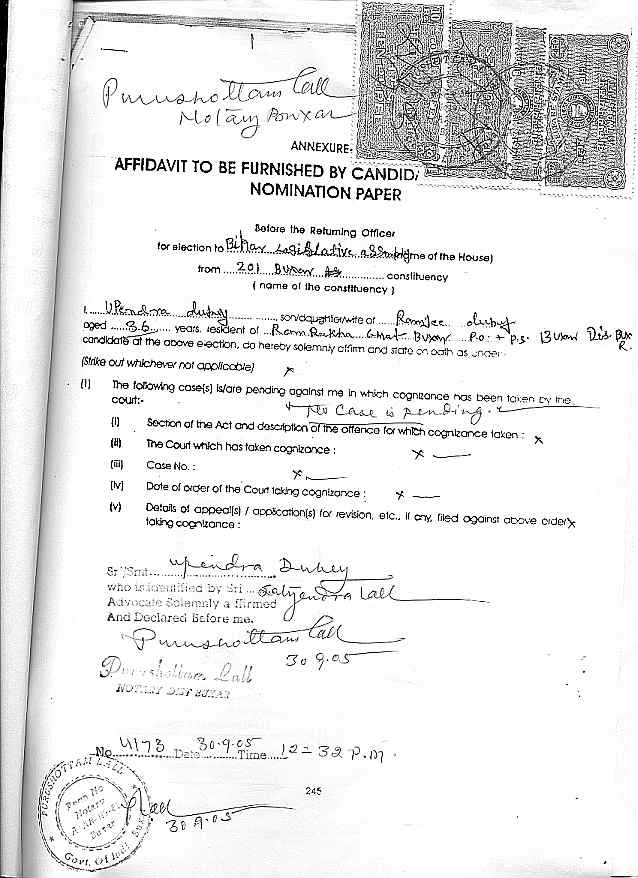 Purushottam Lall
Notary Buxar
ANNEXURE-
AFFIDAVIT TO BE FURNISHED BY CANDID
NOMINATION PAPER
Before the Returning Officer
for election to Bihar Legislative assembly me of the House)
from 201 Buxar constituency
( name of the constituency )
I, Upendra dubey son/daughter/wife of Ramjee dubey
aged 36 years, resident of Ram Rekha Ghat Buxar P.O. + P.S. Buxar Dis. Bux
R.
candidate at the above election, do hereby solemnly affirm and state on oath as under-
(Strike out whichever not applicable) x
(I) The following case(s) is/are pending against me in which cognizance has been taken by the
court:- x No Case is pending. x
(i) Section of the Act and description of the offence for which cognizance taken : x
(ii) The Court which has taken cognizance : x
(iii) Case No. : x
(iv) Date of order of the Court taking cognizance : x
(v) Details of appeal(s) / application(s) for revision, etc., if any, filed against above order x
taking cognizance :
Sri/Smt. Upendra Dubey
who is identified by Sri Satyendra Lall
Advocate Solemnly affirmed
And Declared Before me.
Purushottam Lall
30.9.05
Purushottam Lall
NOTARY DIST BUXAR
No. 4173 Date 30.9.05 Time 12=32 P.M.
245
PURUSHOTTAM LALL
Notary
Buxar
Govt. Of Indi
Lall
30.9.05